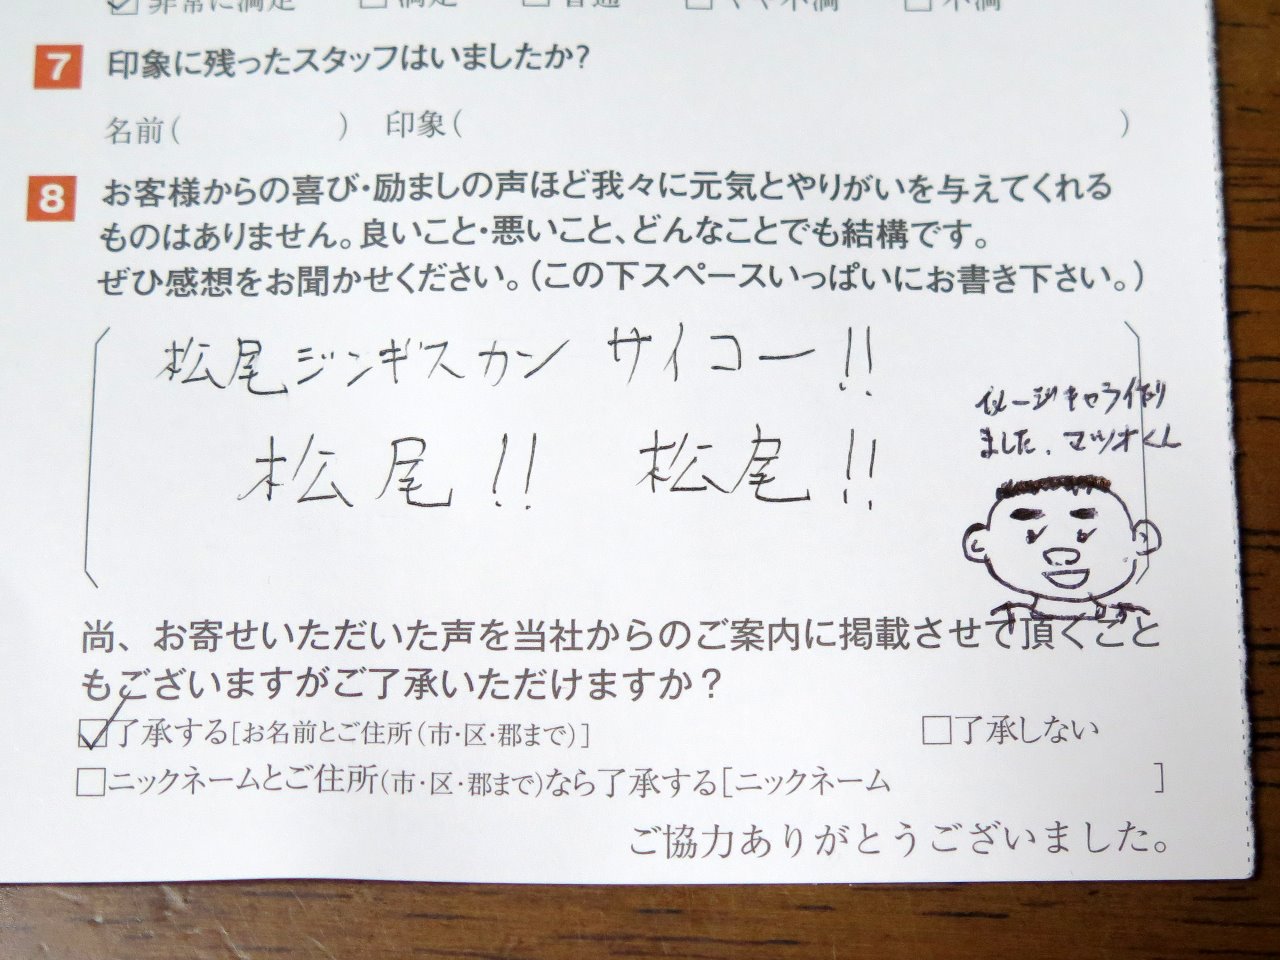 ☑非常に満足 □満足 □普通 □やや不満 □不満
7 印象に残ったスタッフはいましたか?
名前( ) 印象( )
8 お客様からの喜び・励ましの声ほど我々に元気とやりがいを与えてくれる
ものはありません。良いこと・悪いこと、どんなことでも結構です。
ぜひ感想をお聞かせください。(この下スペースいっぱいにお書き下さい。)
松尾ジンギスカン サイコー!!
松尾!! 松尾!!
イメージキャラ作り
ました。マツオくん
尚、お寄せいただいた声を当社からのご案内に掲載させて頂くこと
もございますがご了承いただけますか?
☑了承する[お名前とご住所(市・区・郡まで)] □了承しない
□ニックネームとご住所(市・区・郡まで)なら了承する[ニックネーム ]
ご協力ありがとうございました。